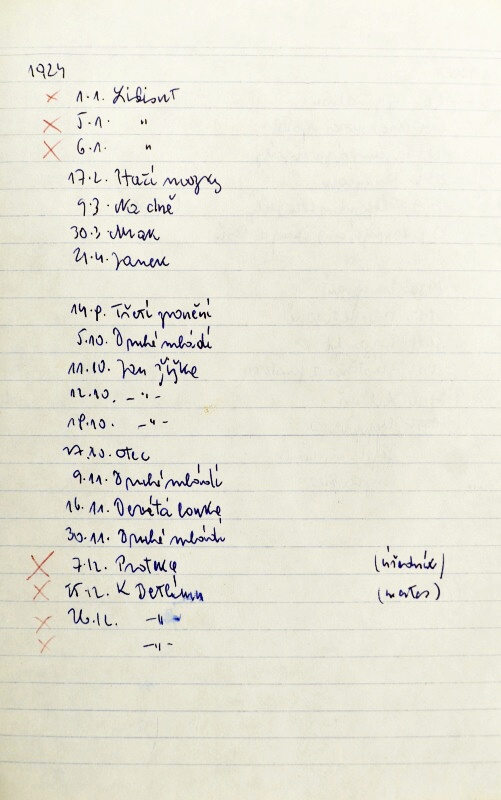 1924
× 1.1. Libient
× 5.1. "
× 6.1. "
17.2. Ptačí mozky
9.3. Na dně
30.3. Mrak
21.4. Janek
14.9. Třetí zvonění
5.10. Druhé mládí
11.10. Jan Žižka
12.10. -"-
19.10. -"-
27.10. Otec
9.11. Druhé mládí
16.11. Devátá louka
30.11. Druhé mládí
× 7.12. (úředník)
× 25.12. K Betlému
× 26.12. -"-
× -"-